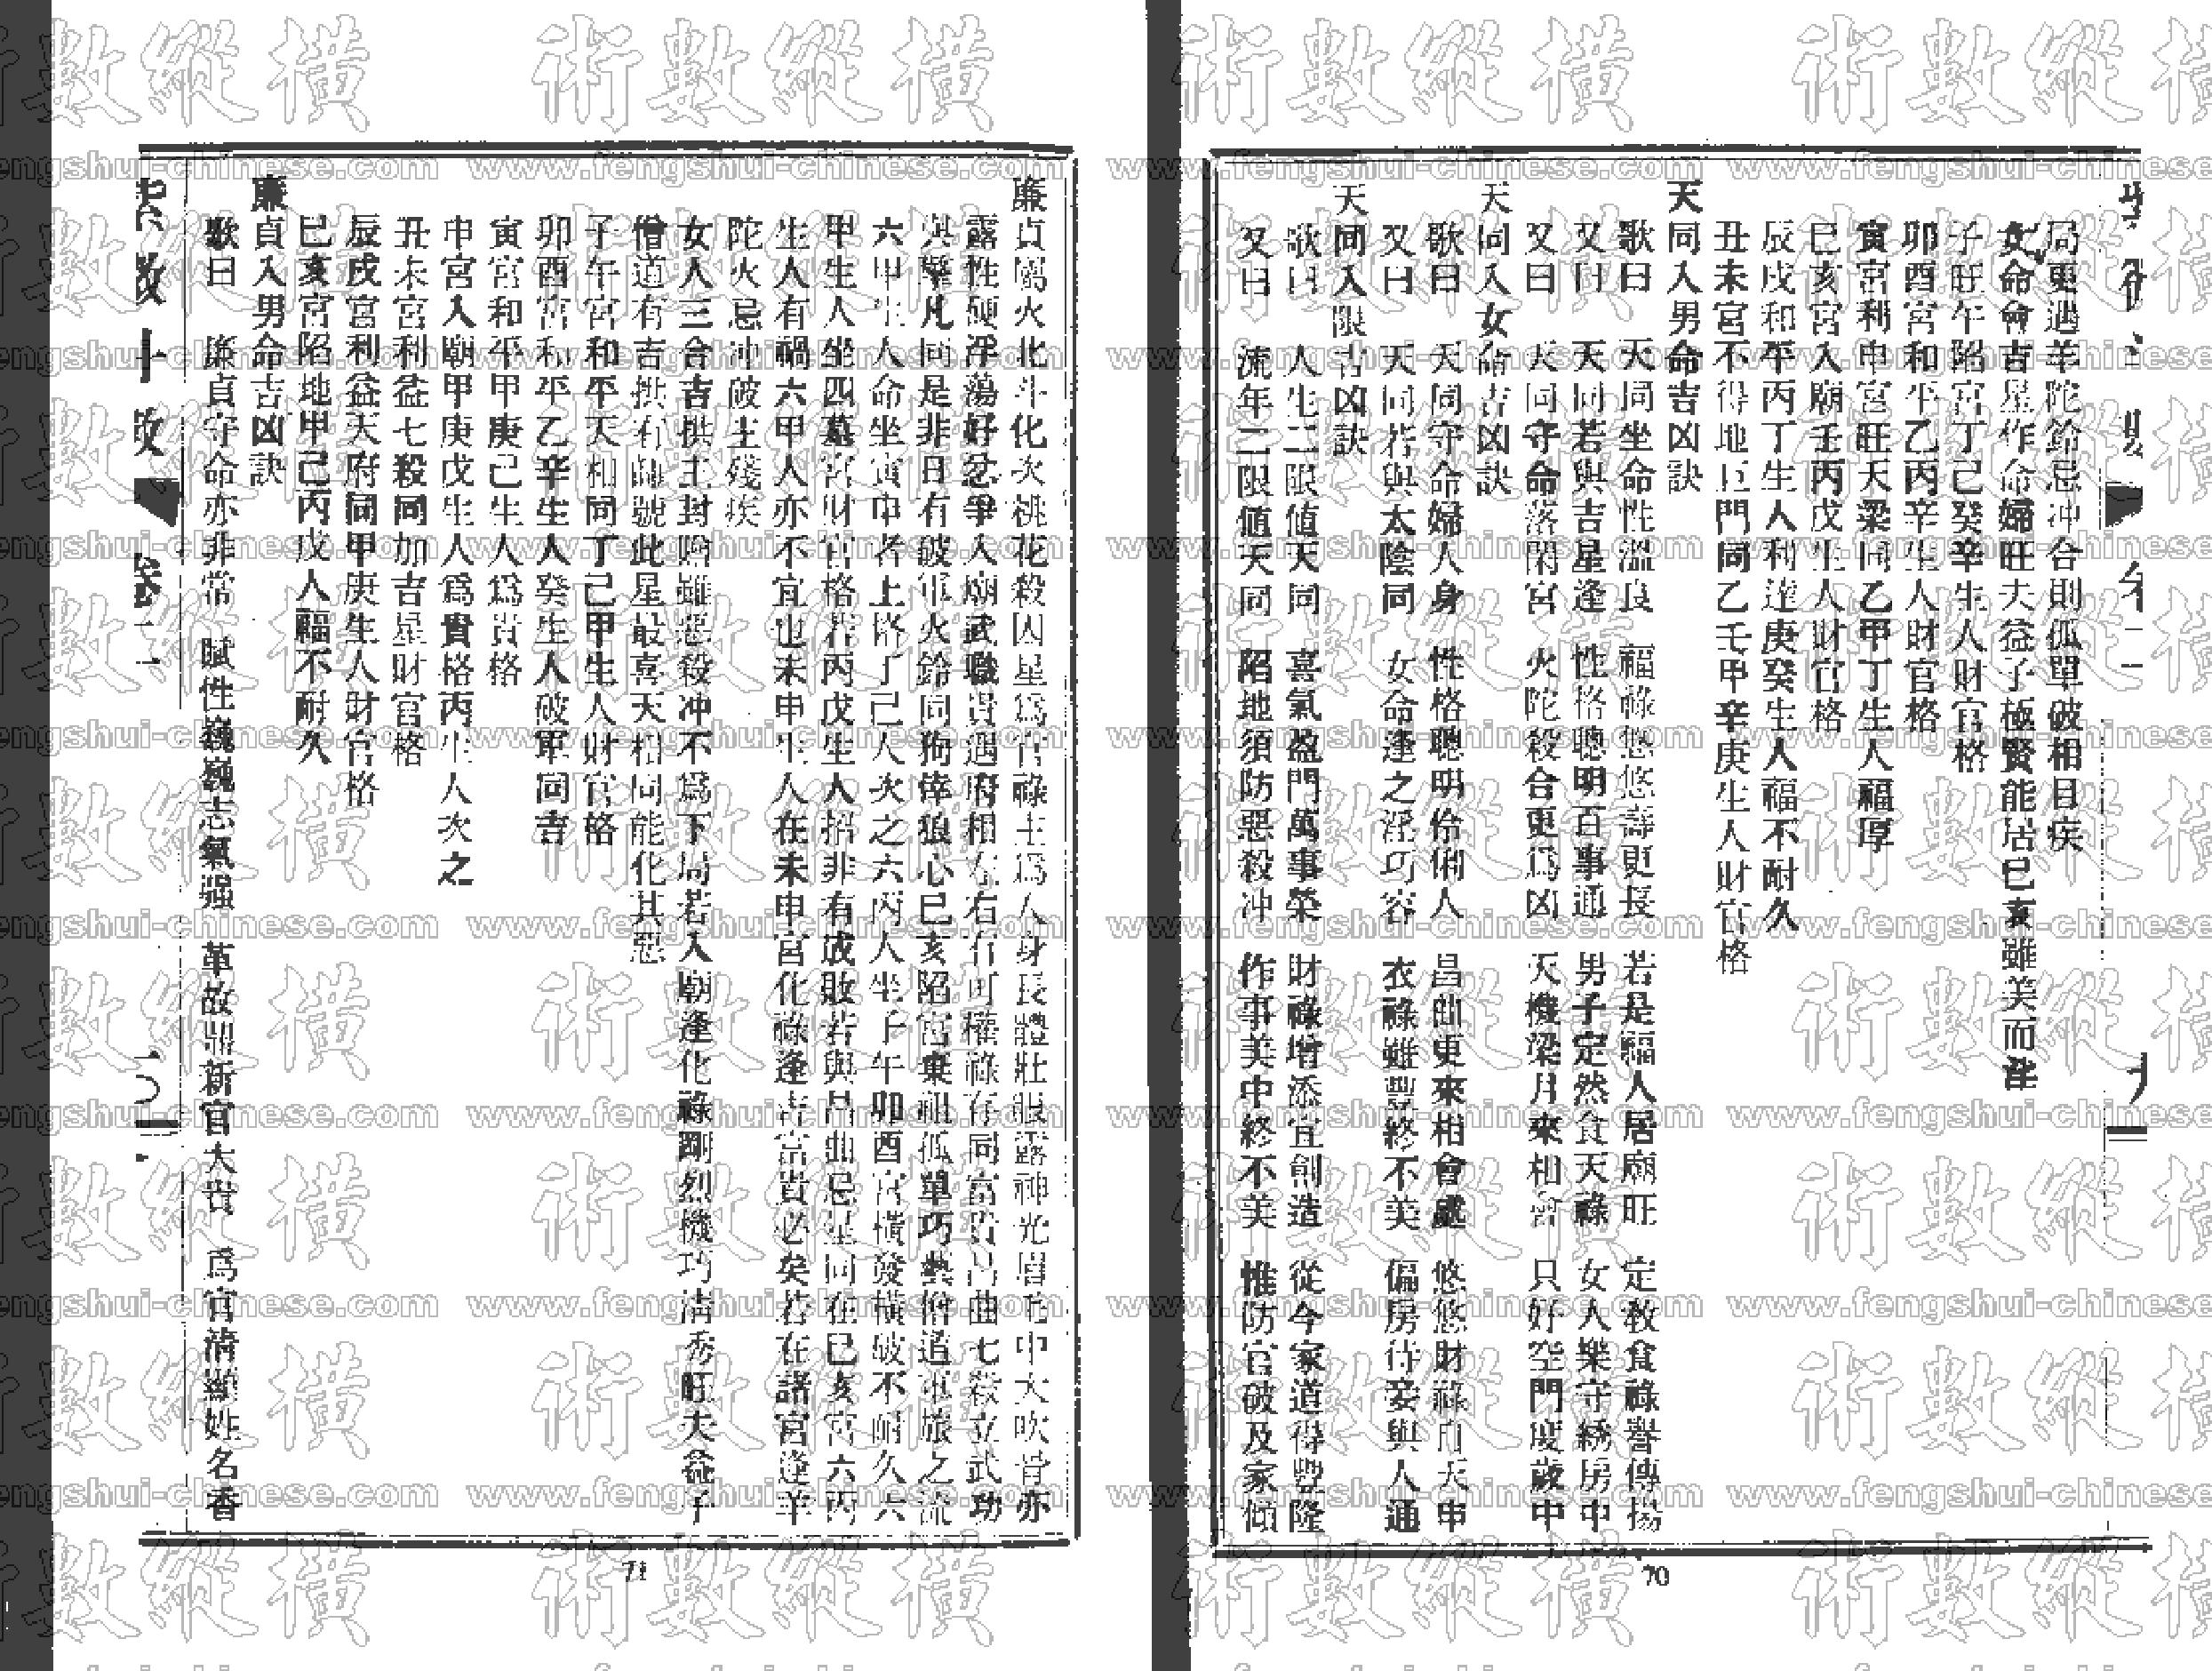 局更遇羊陀鈴忌冲合則孤單破相目疾
女命會吉星作命婦旺夫益子極賢能居巳亥雖美而淫
子旺午陷宮丁己癸辛生人財官格
卯酉宮和平乙丙辛生人財官格
寅宮利申宮旺天梁同乙甲丁生人福厚
巳亥宮入廟壬丙戊生人財官格
辰戌和平丙丁生人利達庚癸生人福不耐久
丑未宮不得地巨門同乙壬甲辛庚生人財官格
天同入男命吉凶訣
歌曰 天同坐命性溫良 福祿悠悠壽更長 若是福人居廟旺 定教食祿譽傳揚
又曰 天同若與吉星逢 性格聰明百事通 男子定然食天祿 女人樂守綉房中
又曰 天同守命落閑宮 火陀殺合更爲凶 天機梁月來相會 只好空門度歲中
天同入女命吉凶訣
歌曰 天同守命婦人身 性格聰明伶俐人 昌曲更來相會處 悠悠財祿自天申
又曰 天同若與太陰同 女命逢之淫巧容 衣祿雖豐終不美 偏房侍妾與人通
天同入限吉凶訣
歌曰 人生二限値天同 喜氣盈門萬事榮 財祿增添宜創造 從今家道得豐隆
又曰 流年二限値天同 陷地須防惡殺冲 作事美中終不美 惟防官破及家傾
70
廉貞屬火北斗化次桃花殺囚星爲官祿主爲人身長體壯眼露神光眉毛中大吹骨亦
露性硬浮蕩好忿爭入廟武職貴遇府相左右有可權祿存同富貴昌曲七殺立武功
與擊凡同是非日有破軍火鈴同狗倖狼心巳亥陷宮棄祖孤單巧藝僧道軍旅之流
六甲生人命坐寅申者上格丁己人次之六丙人坐子午卯酉宮橫發橫破不耐久六
甲生人坐四墓宮財官格若丙戊生人招非有成敗若與昌曲忌星同在巳亥宮六丙
生人有禍六甲人亦不宜也未申生人在未申宮化祿逢吉富貴必矣若在諸宮逢羊
陀火忌冲破主殘疾
女人三合吉拱主封贈雖惡殺冲不爲下局若入廟逢化祿剛烈機巧清秀旺夫益子
僧道有吉拱有師號此星最喜天相同能化其惡
子午宮和平天相同丁己甲生人財官格
卯酉宮和平乙辛生人癸生人破軍同吉
寅宮和平甲庚己生人爲貴格
申宮入廟甲庚戊生人爲貴格丙生人次之
丑未宮利益七殺同加吉星財官格
辰戌宮利益天府同甲庚生人財官格
巳亥宮陷地甲己丙戊人福不耐久
廉貞入男命吉凶訣
歌曰 廉貞守命亦非常 賦性巍巍志氣强 革故鼎新官大貴 爲官清顯姓名香
71
術數縱橫
www.fengshui-chinese.com